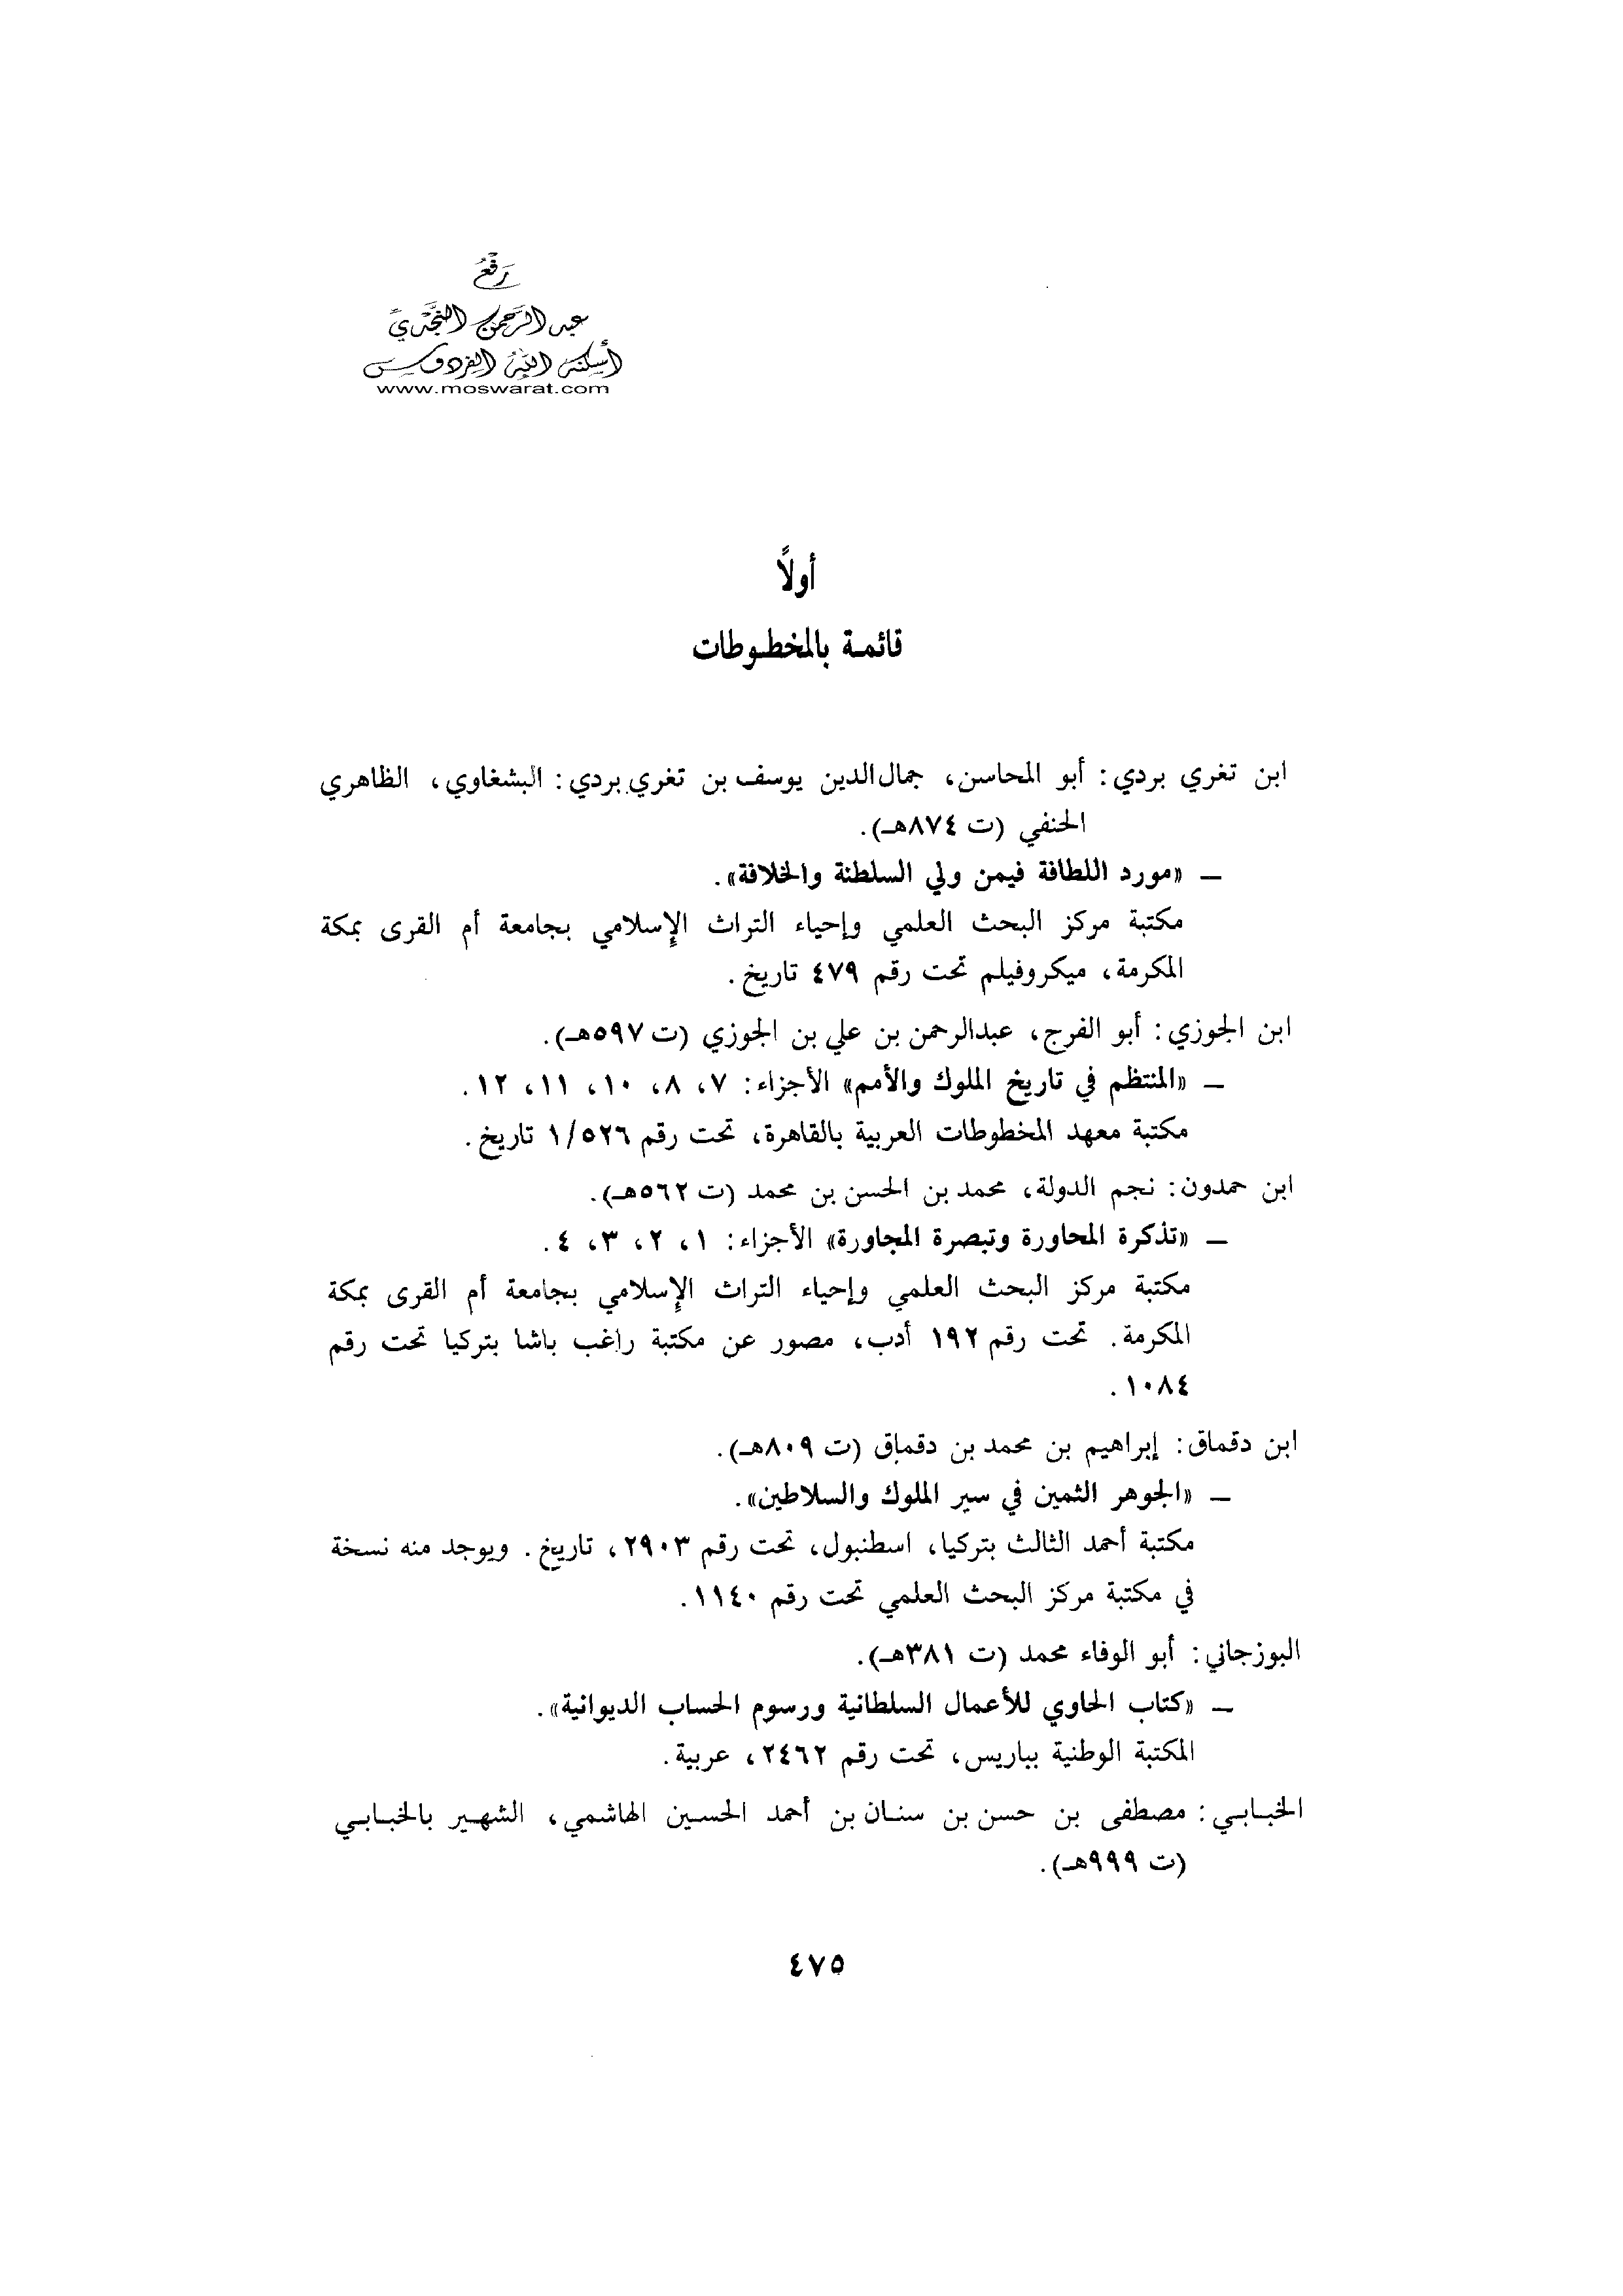 رَفَعُ
عبد الرحمن النجدي
أسكنه الله الفردوس
www.moswarat.com
أولاً
قائمة بالمخطوطات
ابن تغري بردي: أبو المحاسن، جمال الدين يوسف بن تغري بردي: البشغاوي، الظاهري
الحنفي (ت ٨٧٤هـ).
ــ «مورد اللطافة فيمن ولي السلطنة والخلافة».
مكتبة مركز البحث العلمي وإحياء التراث الإسلامي بجامعة أم القرى بمكة
المكرمة، ميكروفيلم تحت رقم ٤٧٩ تاريخ.
ابن الجوزي: أبو الفرج، عبدالرحمن بن علي بن الجوزي (ت ٥٩٧هـ).
ــ «المنتظم في تاريخ الملوك والأمم» الأجزاء: ٧، ٨، ١٠، ١١، ١٢.
مكتبة معهد المخطوطات العربية بالقاهرة، تحت رقم ١/٥٢٦ تاريخ.
ابن حمدون: نجم الدولة، محمد بن الحسن بن محمد (ت ٥٦٢هـ).
ــ «تذكرة المحاورة وتبصرة المجاورة» الأجزاء: ١، ٢، ٣، ٤.
مكتبة مركز البحث العلمي وإحياء التراث الإسلامي بجامعة أم القرى بمكة
المكرمة. تحت رقم ١٩٢ أدب، مصور عن مكتبة راغب باشا بتركيا تحت رقم
١٠٨٤.
ابن دقماق: إبراهيم بن محمد بن دقماق (ت ٨٠٩هـ).
ــ «الجوهر الثمين في سير الملوك والسلاطين».
مكتبة أحمد الثالث بتركيا، اسطنبول، تحت رقم ٢٩٠٣، تاريخ. ويوجد منه نسخة
في مكتبة مركز البحث العلمي تحت رقم ١١٤٠.
البوزجاني: أبو الوفاء محمد (ت ٣٨١هـ).
ــ «كتاب الحاوي للأعمال السلطانية ورسوم الحساب الديوانية».
المكتبة الوطنية بباريس، تحت رقم ٢٤٦٢، عربية.
الخبابي: مصطفى بن حسن بن سنان بن أحمد الحسين الهاشمي، الشهير بالخبابي
(ت ٩٩٩هـ).
٤٧٥